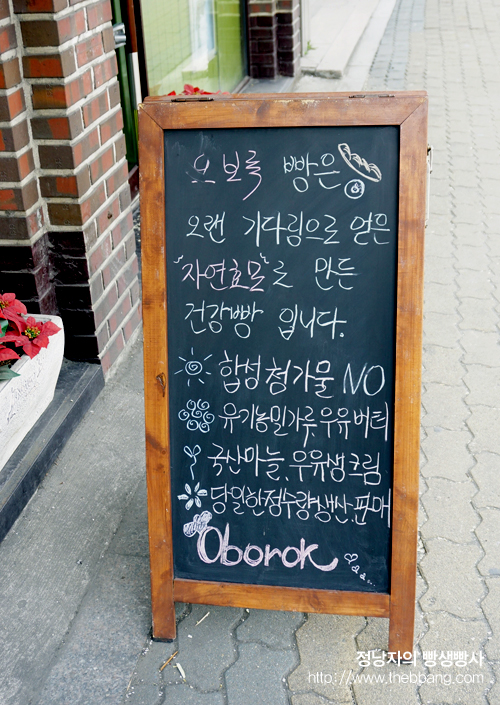 오보록 빵은
오랜 기다림으로 얻은
"자연효모"로 만든
건강빵 입니다.
합성첨가물 NO
유기농밀가루, 우유버터
국산마늘, 우유생크림
당일한정수량생산, 판매
Oborok
정남자의 빵생빵사
http://www.thebbang.com